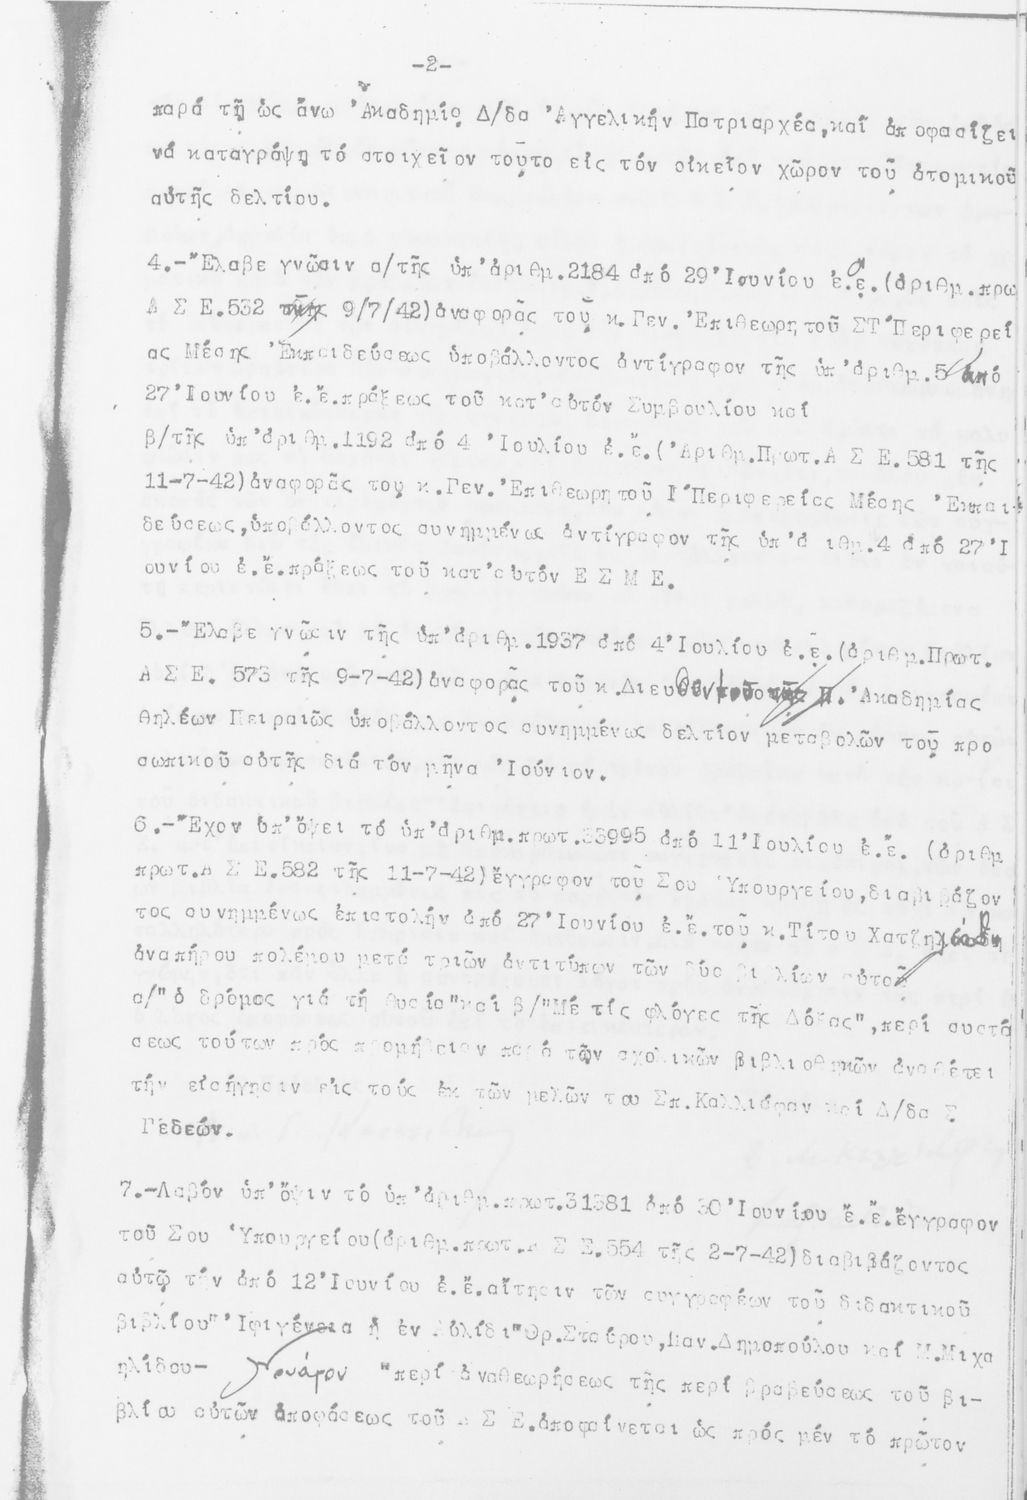 -2-
παρά τῇ ὡς ἄνω Ἀκαδημίᾳ Δ/δα Ἀγγελικήν Πατριαρχέα, καί ἀποφασίζει
νά καταγράψῃ τό στοιχεῖον τοῦτο εἰς τόν οἰκεῖον χῶρον τοῦ ἀτομικοῦ
αὐτῆς δελτίου.
4.-Ἔλαβε γνῶσιν α/τῆς ὑπ'ἀριθμ.2184 ἀπό 29 Ἰουνίου ἐ.ἔ.(ἀριθμ.πρω
Α Σ Ε.532 τῆς 9/7/42)ἀναφορᾶς τοῦ κ.Γεν.Ἐπιθεωρητοῦ ΣΤ'Περιφερεί
ας Μέσης Ἐκπαιδεύσεως ὑποβάλλοντος ἀντίγραφον τῆς ὑπ'ἀριθμ.5 ἀπό
27 Ἰουνίου ἐ.ἔ.πράξεως τοῦ κατ'αὐτόν Συμβουλίου καί
β/τῆς ὑπ'ἀριθμ.1192 ἀπό 4 Ἰουλίου ἐ.ἔ.(Ἀριθμ.Πρωτ.Α Σ Ε.581 τῆς
11-7-42)ἀναφορᾶς του κ.Γεν.Ἐπιθεωρητοῦ Ι'Περιφερείας Μέσης Ἐκπαι-
δεύσεως, ὑποβάλλοντος συνημμένως ἀντίγραφον τῆς ὑπ'ἀ ιθμ.4 ἀπό 27 Ἰ
ουνίου ἐ.ἔ.πράξεως τοῦ κατ'αὐτόν Ε Σ Μ Ε.
5.-Ἔλαβε γνῶσιν τῆς ὑπ'ἀριθμ.1937 ἀπό 4 Ἰουλίου ἐ.ἔ.(ἀριθμ.Πρωτ.
Α Σ Ε. 573 τῆς 9-7-42)ἀναφορᾶς τοῦ κ.Διευθυντοῦ τῆς Π.Ἀκαδημίας
θηλέων Πειραιῶς ὑποβάλλοντος συνημμένως δελτίον μεταβολῶν τοῦ προ
σωπικοῦ αὐτῆς διά τόν μῆνα Ἰούνιον.
6.-Ἔχον ὑπ'ὄψει τό ὑπ'ἀριθμ.πρωτ.33995 ἀπό 11 Ἰουλίου ἐ.ἔ. (ἀριθμ
πρωτ.Α Σ Ε.582 τῆς 11-7-42)ἔγγραφον τοῦ Σου Ὑπουργείου, διαβιβάζον
τος συνημμένως ἐπιστολήν ἀπό 27 Ἰουνίου ἐ.ἔ.τοῦ κ.Τίτου
ἀναπήρου πολέμου μετά τριῶν ἀντιτύπων τῶν δύο βιβλίων αὐτοῦ
α/"ὁ δρόμος γιά τή θυσία"καί β/"Μέ τίς φλόγες τῆς Δόξας", περί συστά
σεως τούτων πρός προμήθειαν παρά τῶν σχολικῶν βιβλιοθηκῶν ἀναθέτει
τήν εἰσήγησιν εἰς τούς ἐκ τῶν μελῶν του Σπ.Καλλιάφαν καί Δ/δα Σ
Γέδεών.
7.-Λαβόν ὑπ'ὄψιν τό ὑπ'ἀριθμ.πρωτ.31381 ἀπό 30 Ἰουνίου ἔ.ἔ.ἔγγραφον
τοῦ Σου Ὑπουργείου(ἀριθμ.πρωτ.Α Σ Ε.554 τῆς 2-7-42)διαβιβάζοντος
αὐτῷ τήν ἀπό 12 Ἰουνίου ἐ.ἔ.αἴτησιν τῶν συγγραφέων τοῦ διδακτικοῦ
βιβλίου"Ἰφιγένεια ἡ ἐν Αὐλίδι"Θρ.Σταύρου, Παν.Δημοπούλου καί Μ.Μιχα
ηλίδου- "περί ἀναθεωρήσεως τῆς περί βραβεύσεως τοῦ βι-
βλίου αὐτῶν ἀποφάσεως τοῦ Α Σ Ε.ἀποφαίνεται ὡς πρός μέν τό πρῶτον